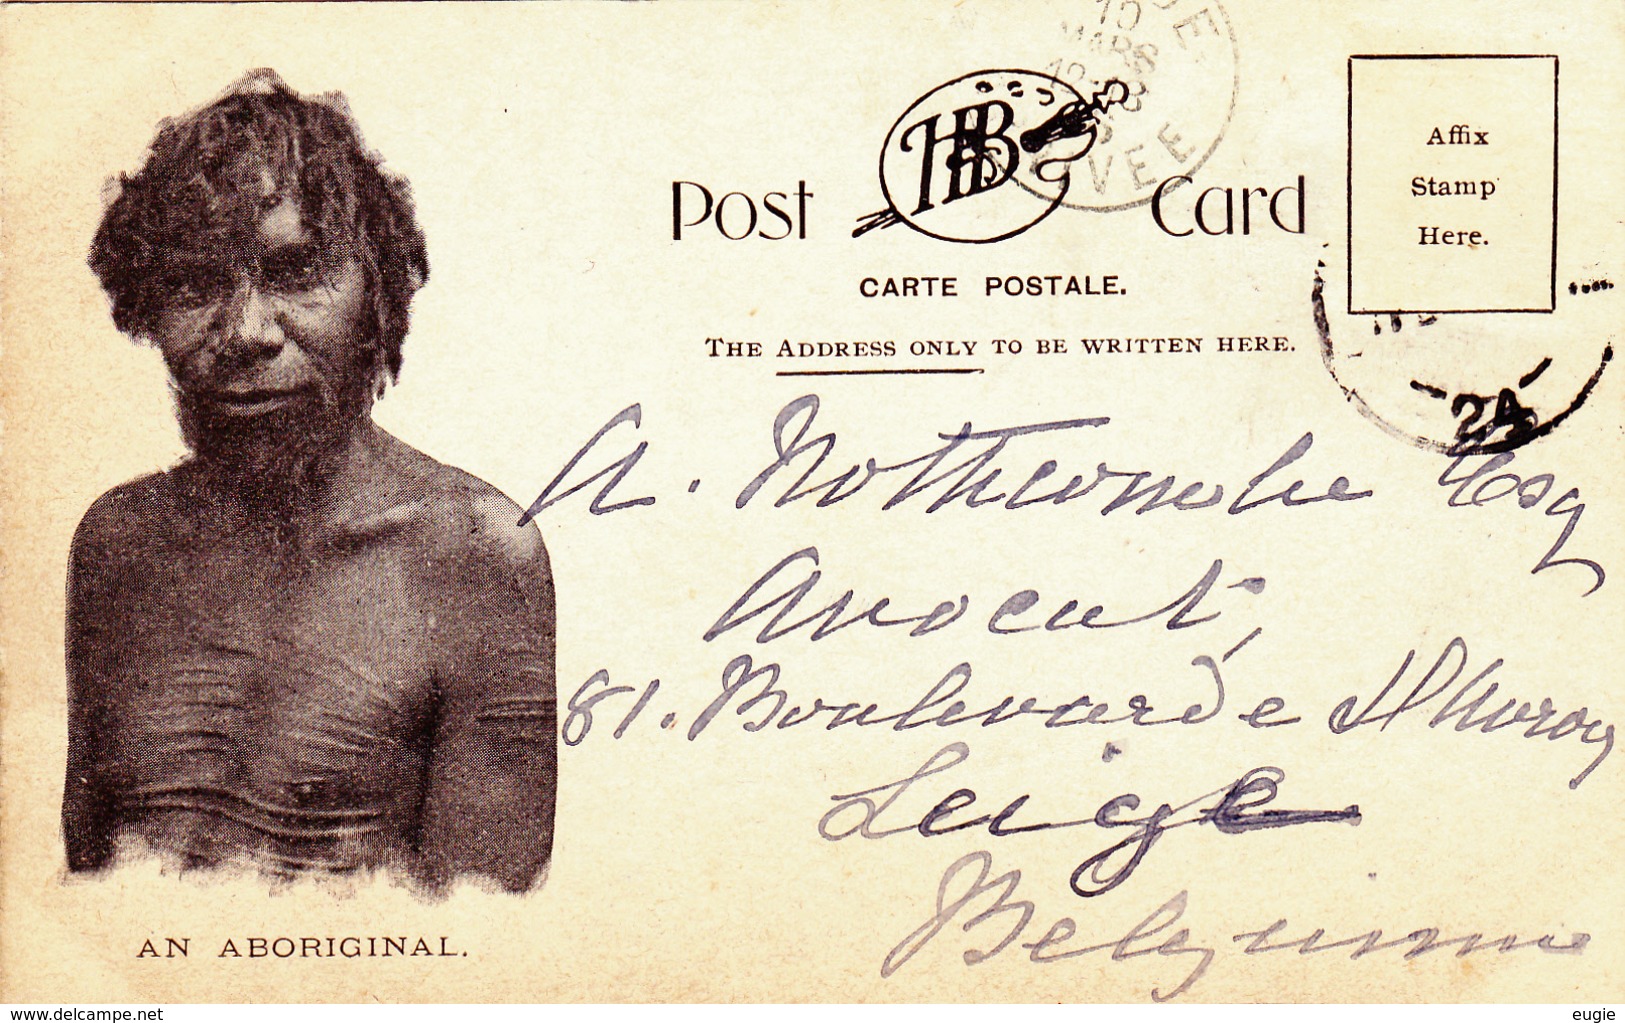 Post HB Card
CARTE POSTALE.
THE ADDRESS ONLY TO BE WRITTEN HERE.
Affix
Stamp
Here.
10
MARS
VEE
2A
A. Nothcombe Esq
Avocat,
81. Boulevarde D'Avroy
Leige
Belgium
AN ABORIGINAL.
www.delcampe.net
eugie